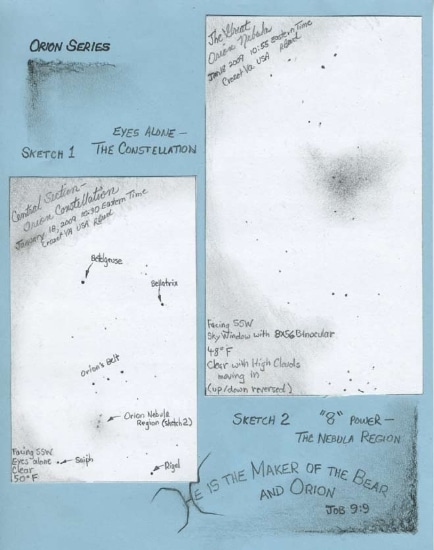 ORION SERIES
EYES ALONE -
SKETCH 1 THE CONSTELLATION
Central Section -
Orion Constellation
January 18, 2009 10:30 Eastern Time
Crozet VA USA
Betelgeuse
Bellatrix
Orion's Belt
Orion Nebula
Region (sketch 2)
Facing SSW
Eyes alone
Clear
50° F
Saiph
Rigel
The Great
Orion Nebula
Jan 18 2009 10:55 Eastern Time
Crozet Va USA
Facing SSW
Sky Window with 8X56 Binocular
48° F
Clear with High Clouds
moving in
(up/down reversed)
SKETCH 2 "8" POWER -
THE NEBULA REGION
HE IS THE MAKER OF THE BEAR
AND ORION
JOB 9:9